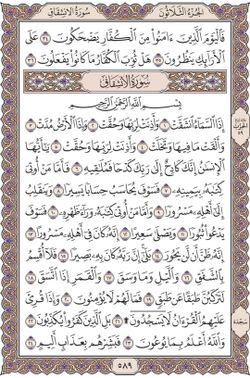 الجزء الثلاثون
سورة الانشقاق
فَٱلْيَوْمَ ٱلَّذِينَ ءَامَنُوا۟ مِنَ ٱلْكُفَّارِ يَضْحَكُونَ ٣٤ عَلَى
ٱلْأَرَآئِكِ يَنظُرُونَ ٣٥ هَلْ ثُوِّبَ ٱلْكُفَّارُ مَا كَانُوا۟ يَفْعَلُونَ ٣٦
سورة الانشقاق
بِسْمِ ٱللَّهِ ٱلرَّحْمَٰنِ ٱلرَّحِيمِ
إِذَا ٱلسَّمَآءُ ٱنشَقَّتْ ١ وَأَذِنَتْ لِرَبِّهَا وَحُقَّتْ ٢ وَإِذَا ٱلْأَرْضُ مُدَّتْ ٣
وَأَلْقَتْ مَا فِيهَا وَتَخَلَّتْ ٤ وَأَذِنَتْ لِرَبِّهَا وَحُقَّتْ ٥ يَٰٓأَيُّهَا
ٱلْإِنسَٰنُ إِنَّكَ كَادِحٌ إِلَىٰ رَبِّكَ كَدْحًا فَمُلَٰقِيهِ ٦ فَأَمَّا مَنْ أُوتِىَ
كِتَٰبَهُۥ بِيَمِينِهِۦ ٧ فَسَوْفَ يُحَاسَبُ حِسَابًا يَسِيرًا ٨ وَيَنقَلِبُ
إِلَىٰٓ أَهْلِهِۦ مَسْرُورًا ٩ وَأَمَّا مَنْ أُوتِىَ كِتَٰبَهُۥ وَرَآءَ ظَهْرِهِۦ ١٠ فَسَوْفَ
يَدْعُوا۟ ثُبُورًا ١١ وَيَصْلَىٰ سَعِيرًا ١٢ إِنَّهُۥ كَانَ فِىٓ أَهْلِهِۦ مَسْرُورًا ١٣
إِنَّهُۥ ظَنَّ أَن لَّن يَحُورَ ١٤ بَلَىٰٓ إِنَّ رَبَّهُۥ كَانَ بِهِۦ بَصِيرًا ١٥ فَلَآ أُقْسِمُ
بِٱلشَّفَقِ ١٦ وَٱلَّيْلِ وَمَا وَسَقَ ١٧ وَٱلْقَمَرِ إِذَا ٱتَّسَقَ ١٨
لَتَرْكَبُنَّ طَبَقًا عَن طَبَقٍ ١٩ فَمَا لَهُمْ لَا يُؤْمِنُونَ ٢٠ وَإِذَا قُرِئَ
عَلَيْهِمُ ٱلْقُرْءَانُ لَا يَسْجُدُونَ ۩ ٢١ بَلِ ٱلَّذِينَ كَفَرُوا۟ يُكَذِّبُونَ ٢٢
وَٱللَّهُ أَعْلَمُ بِمَا يُوعُونَ ٢٣ فَبَشِّرْهُم بِعَذَابٍ أَلِيمٍ ٢٤
سجدة
٥٨٩